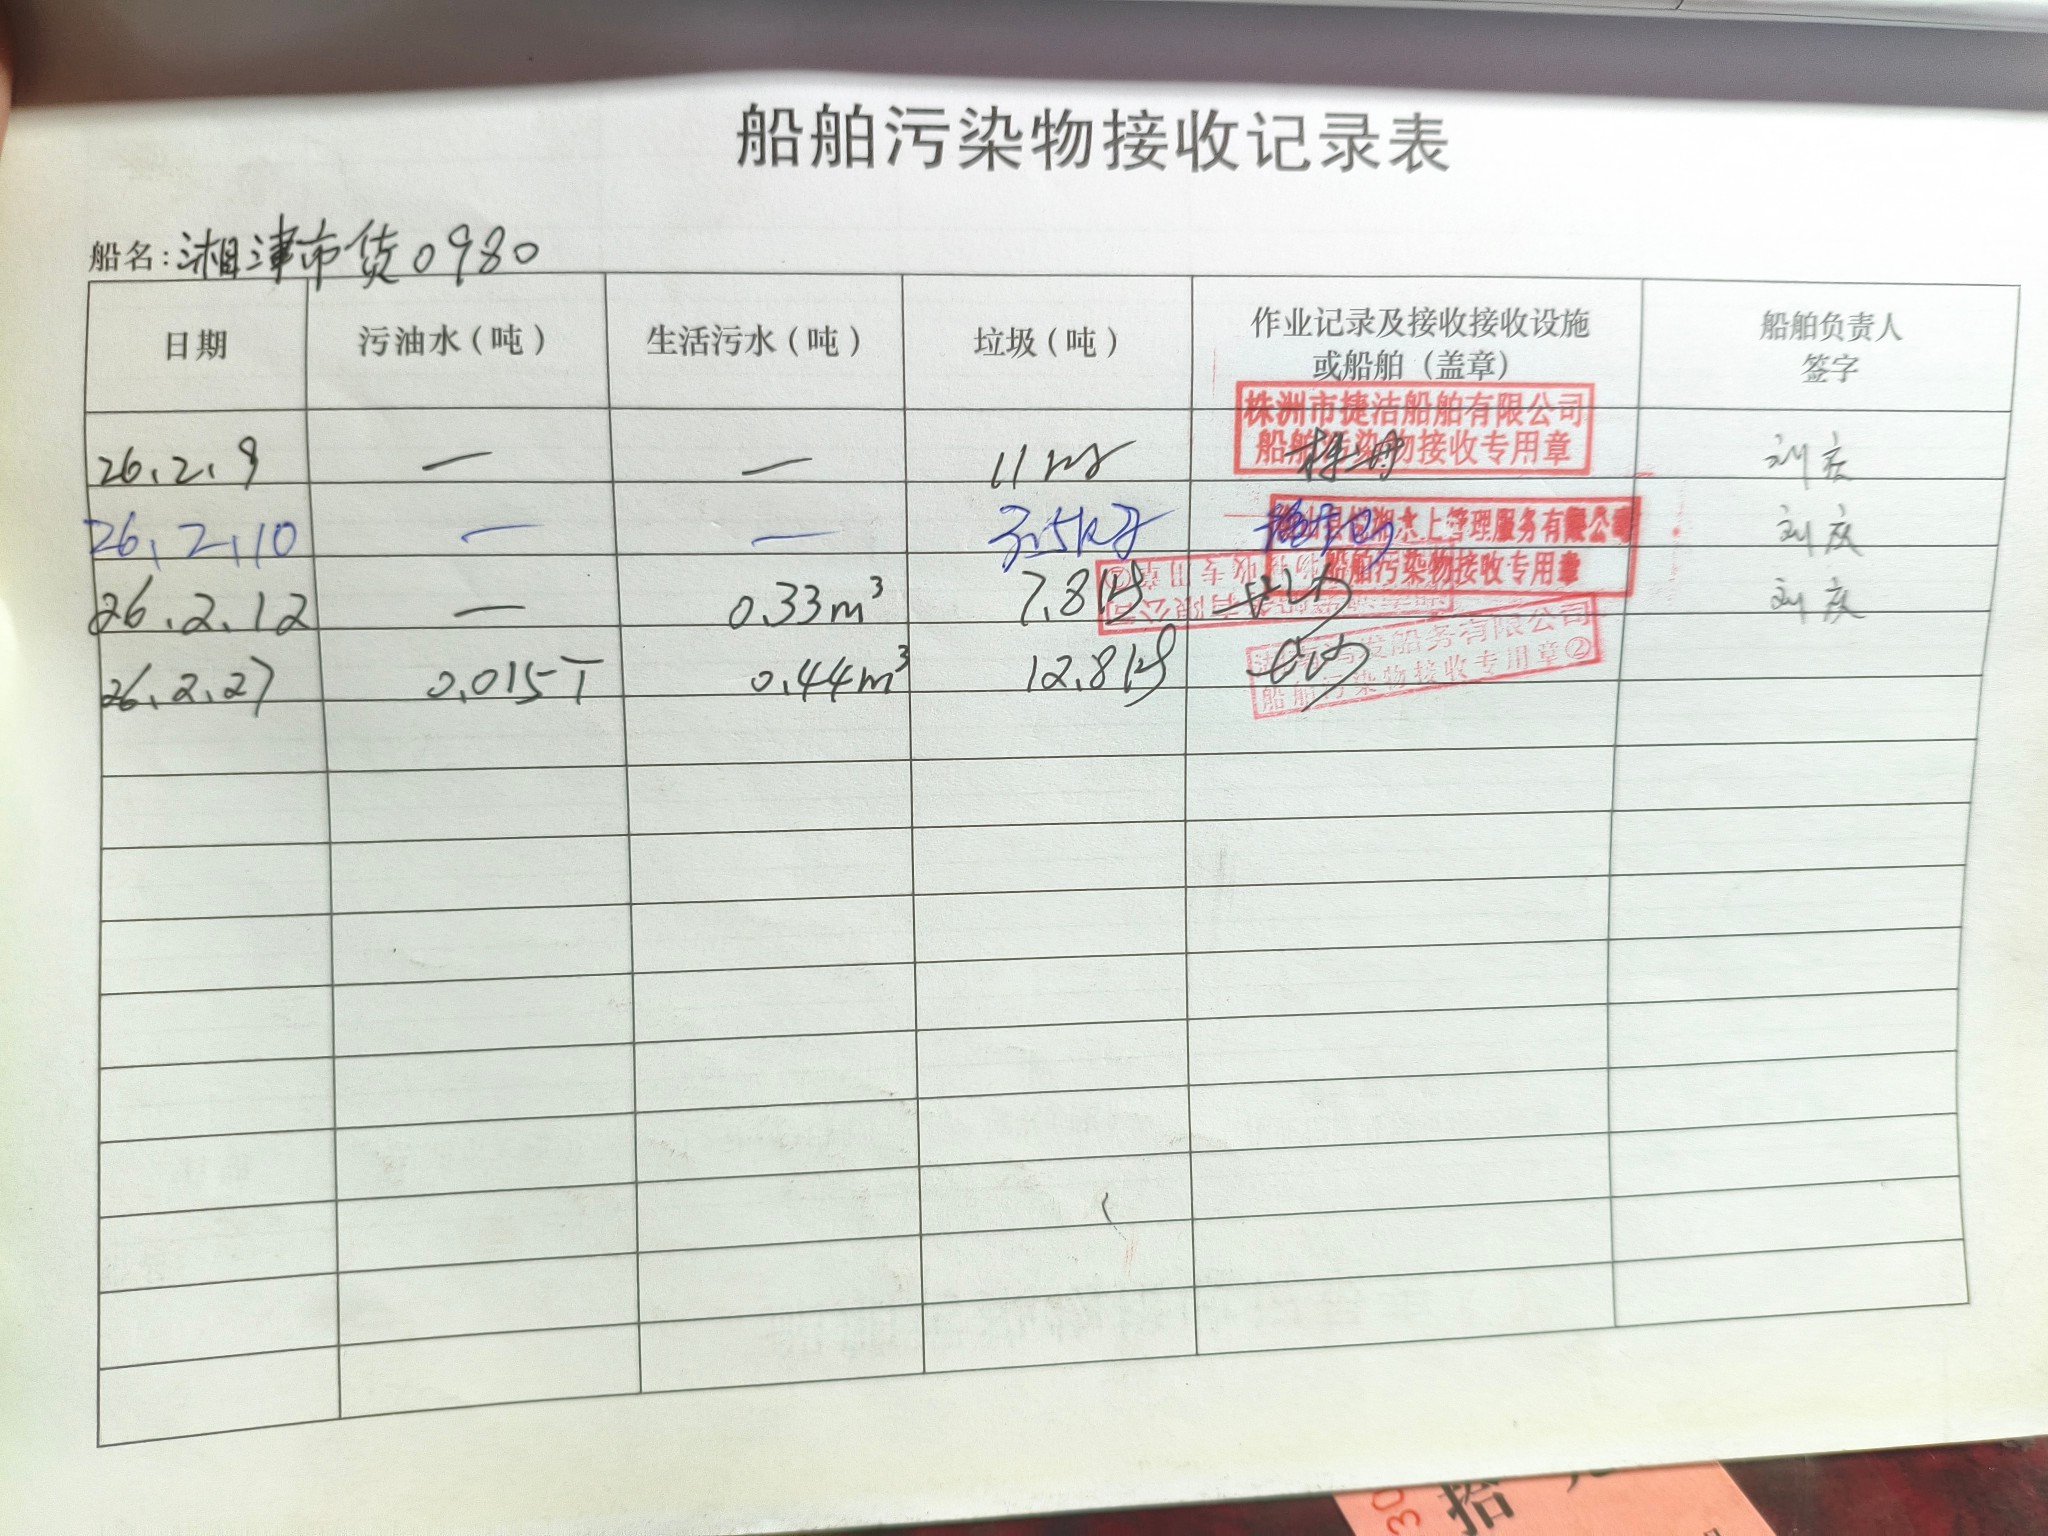 船舶污染物接收记录表
船名:湘津市货0980
日期 污油水(吨) 生活污水(吨) 垃圾(吨) 作业记录及接收接收设施 船舶负责人
或船舶(盖章) 签字
株洲市捷洁船舶有限公司
船舶污染物接收专用章
26.2.9 — — 11 刘庆
水上管理服务有限公司
船舶污染物接收专用章
26.2.10 — — 3.5kg 刘庆
26.2.12 — 0.33m³ 7.8kg 刘庆
发船务有限公司
船舶污染物接收专用章②
26.2.27 0.015T 0.44m³ 12.8kg
30
拾